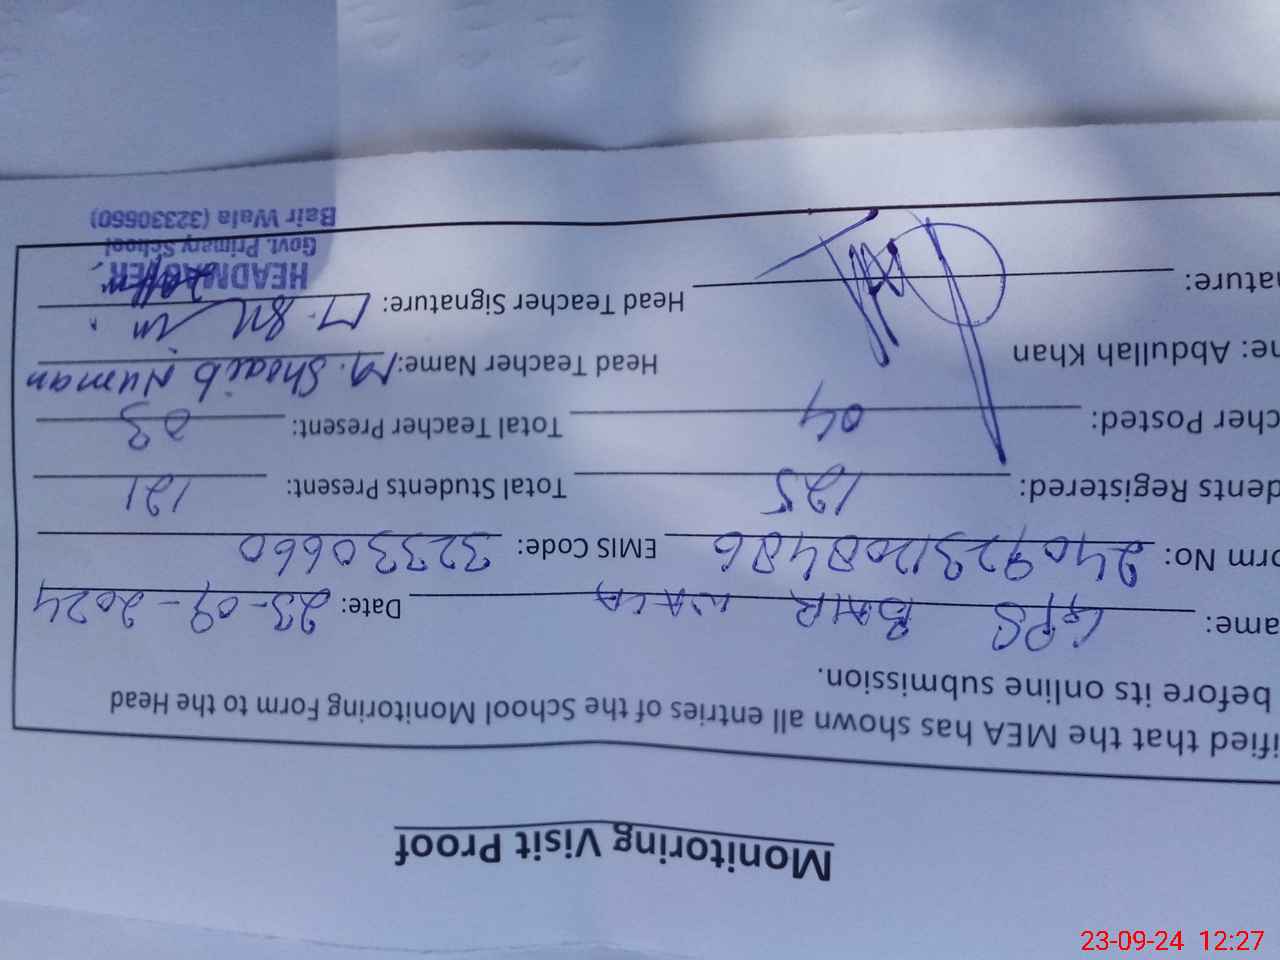 Monitoring Visit Proof
ified that the MEA has shown all entries of the School Monitoring Form to the Head
before its online submission.
ame: GPS BAIR WALA Date: 23-09-2024
orm No: 2409231208486 EMIS Code: 32330660
dents Registered: 125 Total Students Present: 121
cher Posted: 04 Total Teacher Present: 03
ne: Abdullah Khan Head Teacher Name: M. Shoaib Numan
nature: Head Teacher Signature:
HEADMASTER
Govt. Primary School
Bair Wala (32330660)
23-09-24 12:27